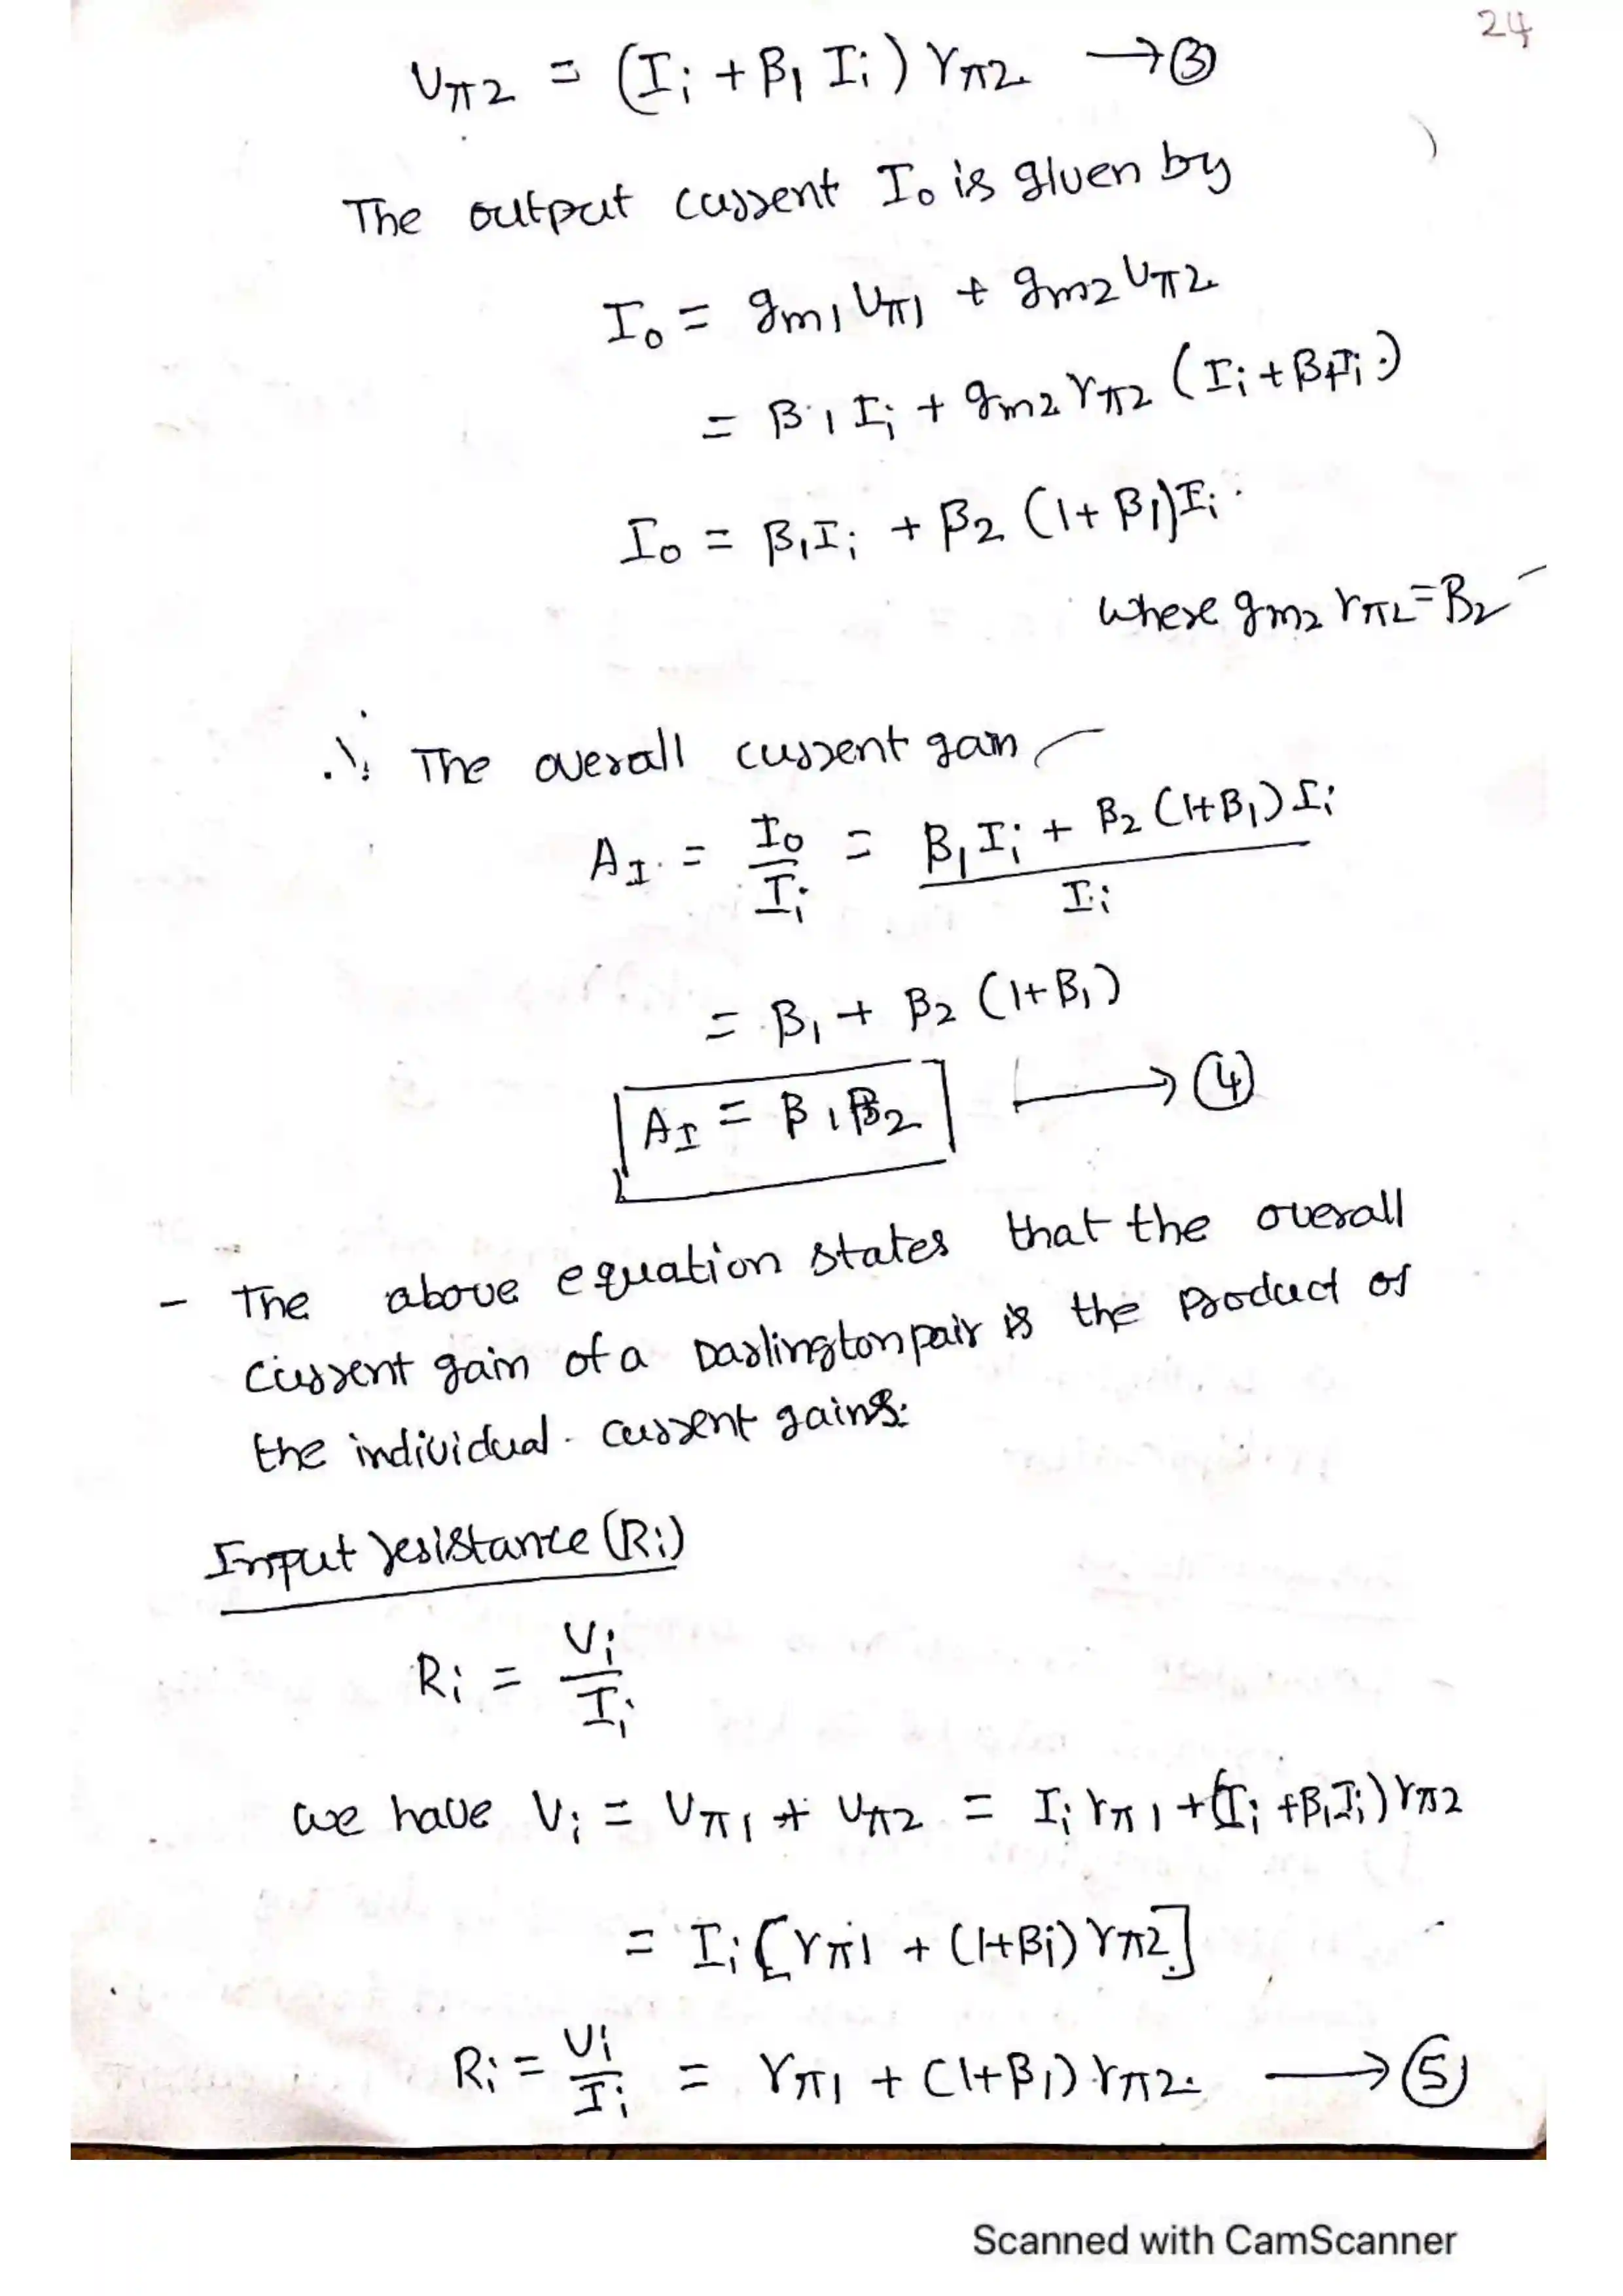 24
Vπ2 = (Ii + β1 Ii) rπ2. → ③
The output current Io is given by
Io = gm1 Vπ1 + gm2 Vπ2
= β1 Ii + gm2 rπ2 (Ii + β1Ii)
Io = β1Ii + β2 (1+β1)Ii
where gm2 rπ2 = β2
∴ The overall current gain
AI = Io/Ii = β1 Ii + β2 (1+β1) Ii / Ii
= β1 + β2 (1+β1)
AI = β1β2 → ④
- The above equation states that the overall
current gain of a Darlington pair is the product of
the individual current gains.
Input resistance (Ri)
Ri = Vi/Ii
we have Vi = Vπ1 + Vπ2 = Ii rπ1 + (Ii + β1Ii) rπ2
= Ii [rπ1 + (1+βi) rπ2]
Ri = Vi/Ii = rπ1 + (1+β1) rπ2. → ⑤
Scanned with CamScanner